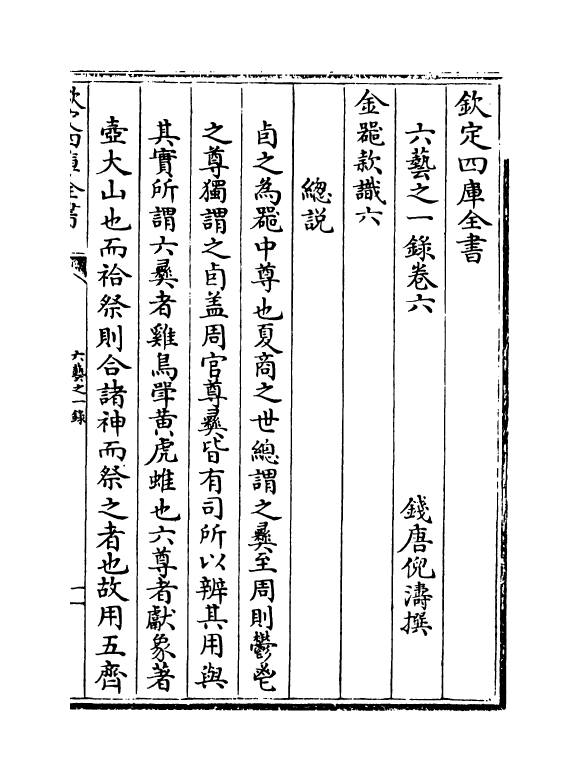 欽定四庫全書
六藝之一錄卷六
錢唐倪濤撰
金器款識六
總説
卣之為器中尊也夏商之世總謂之彞至周則鬱鬯
之尊獨謂之卣盖周官尊彞皆有司所以辨其用與
其實所謂六彞者雞鳥斝黄虎蜼也六尊者獻象著
壺大山也而祫祭則合諸神而祭之者也故用五齊
欽定四庫全書
六藝之一錄